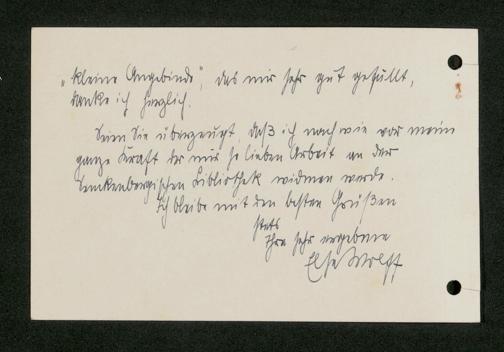 „kleine Angebinde“, das mir sehr gut gefällt,
danke ich herzlich.
Seien Sie überzeugt, daß ich nach wie vor meine
ganze Kraft der mir so lieben Arbeit an der
Senckenbergischen Bibliothek widmen werde.
Ich bleibe mit den besten Grüßen
stets
Ihre sehr ergebene
Else Wolff